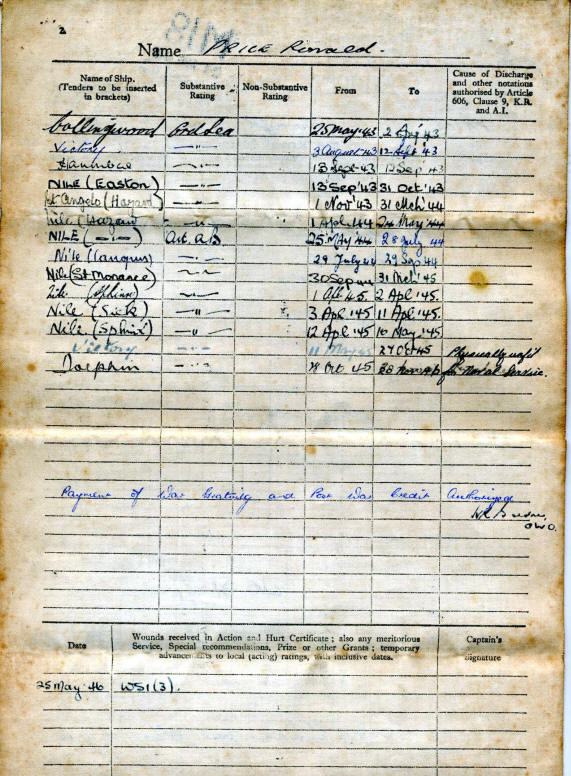 2.
Name PRICE Ronald.
Name of Ship. (Tenders to be inserted in brackets) Substantive Rating Non-Substantive Rating From To Cause of Discharge and other notations authorised by Article 606, Clause 9, K.R. and A.I.
Collingwood Ord Sea 25 May '43 2 Aug '43
Victory —"— 3 August 43 12 Sept '43
Hannibal —"— 13 Sept 43 12 Sep 43
NILE (Easton) —"— 13 Sep '43 31 Oct '43
St Angelo (Hazard) —"— 1 Nov '43 31 Mch '44
Nile (Hazard) —"— 1 Apl '44 24 May '44
NILE (—"—) Act. A.B 25 May 44 28 July 44
Nile (Langua) —"— 29 July 44 29 Sep 44
Nile (St Monance) —"— 30 Sep 44 31 Mch '45
Nile (Sphinx) —"— 1 Apl 45. 2 Apl '45.
Nile (Sick) —"— 3 Apl '45 11 Apl '45.
Nile (Sphinx) —"— 12 Apl '45 10 May '45.
Victory —"— 11 May 45 27 Oct 45 Physically unfit
Dolphin —"— 28 Oct 45 28 Nov 45 for Naval Service.
Payment of War Gratuity and Post War Credit Authorized
Date Wounds received in Action and Hurt Certificate; also any meritorious Service, Special recommendations, Prize or other Grants; temporary advancements to local (acting) ratings, with inclusive dates. Captain's Signature
25 May 46 WS1(3).